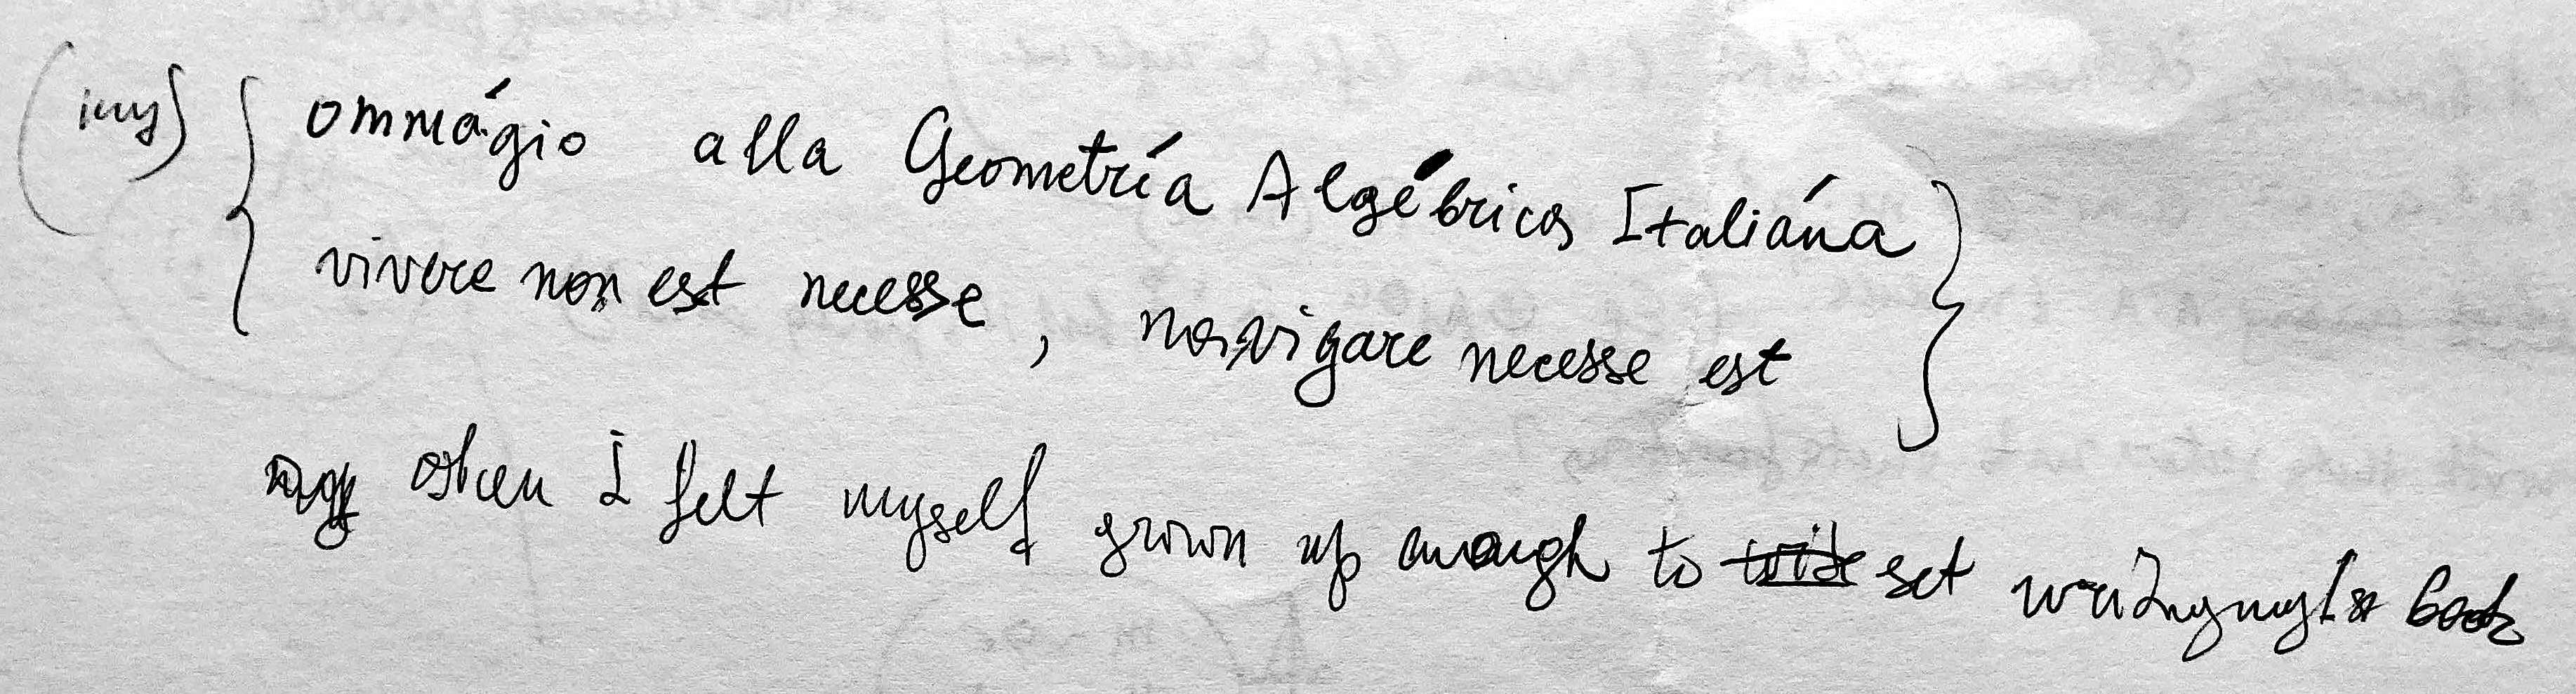 (my) { ommágio alla Geometría Algébrica Italiána
vivere non est necesse, navigare necesse est }
when I felt myself grown up enough to set writing my 1st book